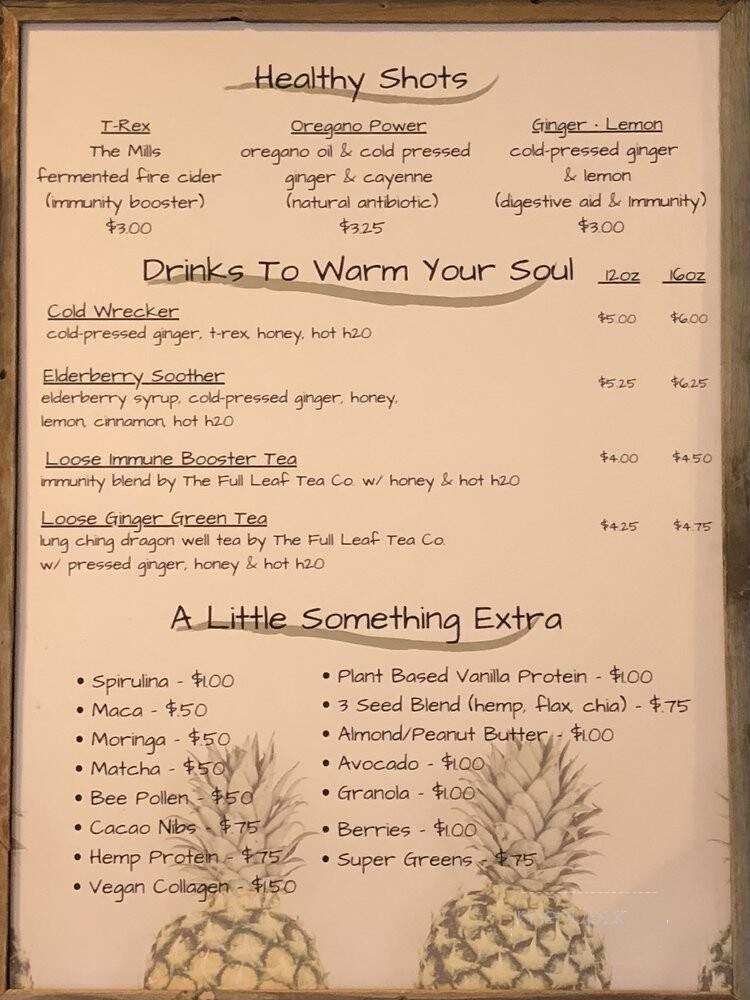 Healthy Shots
T-Rex
The Mills
fermented fire cider
(immunity booster)
$3.00
Oregano Power
oregano oil & cold pressed
ginger & cayenne
(natural antibiotic)
$3.25
Ginger · Lemon
cold-pressed ginger
& lemon
(digestive aid & Immunity)
$3.00
Drinks To Warm Your Soul 12oz 16oz
Cold Wrecker $5.00 $6.00
cold-pressed ginger, t-rex, honey, hot h2O
Elderberry Soother $5.25 $6.25
elderberry syrup, cold-pressed ginger, honey,
lemon, cinnamon, hot h2O
Loose Immune Booster Tea $4.00 $4.50
immunity blend by The Full Leaf Tea Co. w/ honey & hot h2O
Loose Ginger Green Tea $4.25 $4.75
lung ching dragon well tea by The Full Leaf Tea Co.
w/ pressed ginger, honey & hot h2O
A Little Something Extra
• Spirulina - $1.00
• Maca - $.50
• Moringa - $.50
• Matcha - $.50
• Bee Pollen - $.50
• Cacao Nibs - $.75
• Hemp Protein - $.75
• Vegan Collagen - $1.50
• Plant Based Vanilla Protein - $1.00
• 3 Seed Blend (hemp, flax, chia) - $.75
• Almond/Peanut Butter - $1.00
• Avocado - $1.00
• Granola - $1.00
• Berries - $1.00
• Super Greens - $.75